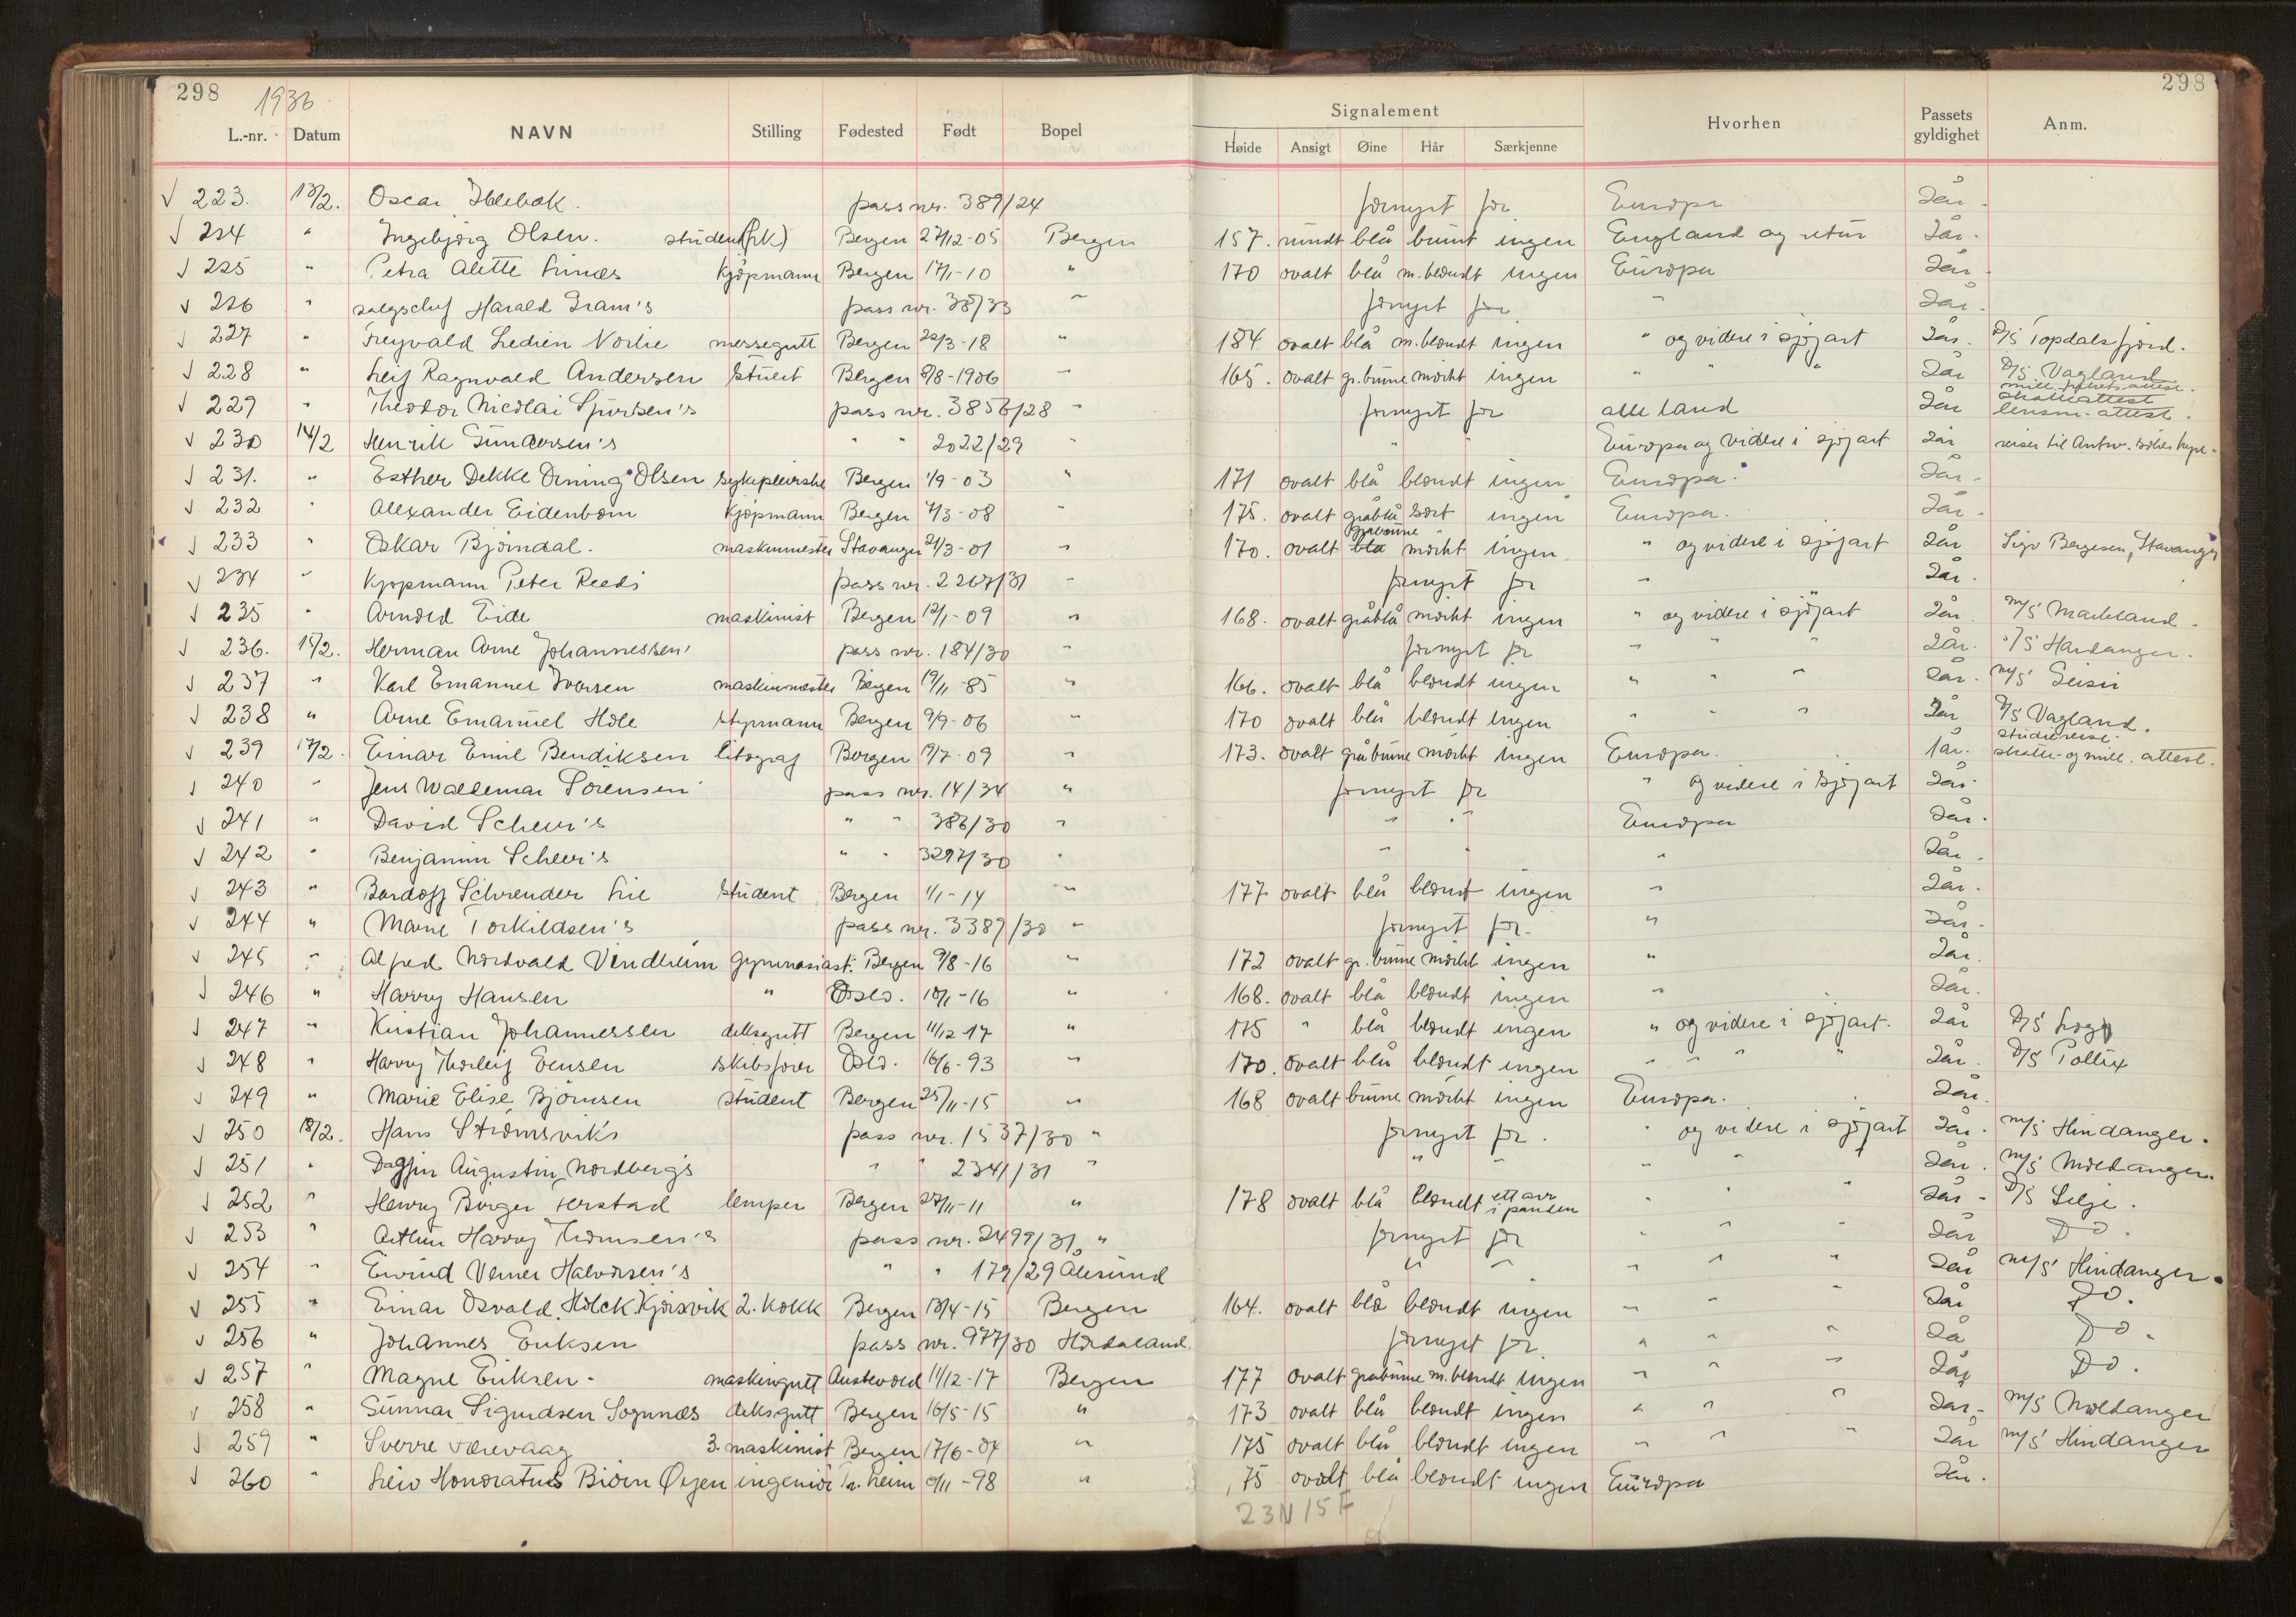 298 1936 298
Signalement
L.-nr. Datum NAVN Stilling Fødested Født Bopel Høide Ansigt Øine Hår Særkjenne Hvorhen Passets gyldighet Anm.
223. 13/2. Oscar pass nr. 389/24 fornyet for Europa 2 år.
224 " Ingebjørg Olsen. student (frk) Bergen 27/12-05 Bergen 157. rundt blå brunt ingen England og retur 2 år.
225 " Petra Alette Kjøpmann Bergen 17/1-10 " 170 ovalt blå m. blondt ingen Europa 2 år.
226 " salgschef Harald Gram's pass nr. 38/33 " fornyet for " 2 år.
227 " Ledien Norlie messegutt Bergen 22/3-18 " 184 ovalt blå m. blondt ingen " og videre i sjøfart 2 år. D/S Topdalsfjord.
228 " Leif Ragnvald Andersen Stuert Bergen 8/8-1906 " 165. ovalt gr. brune mørkt ingen " " " 2 år D/S Vagland
229 " Theodor Nicolai pass nr. 3856/28 " fornyet for alle land 2 år skatteattest lensm. attest.
230 14/2 Henrik Gundersen's " " 2022/29 " " " Europa og videre i sjøfart 2 år reiser til Antw. søker hyre.
231. " Esther Dekke Olsen sykepleierske Bergen 1/9-03 " 171 ovalt blå blondt ingen Europa. 2 år.
232 " Alexander Eidenbom Kjøpmann Bergen 4/3-08 " 175. ovalt gråblå sort ingen Europa. 2 år.
233 " Oskar Bjørndal. maskinmester Stavanger 21/3-01 " 170. ovalt blå gråbrune mørkt ingen " og videre i sjøfart 2 år Sigv Bergesen, Stavanger
234 " Kjøpmann Peter pass nr. 2267/31 " fornyet for " 2 år.
235 " Arnold Eide maskinist Bergen 12/1-09 " 168. ovalt gråblå mørkt ingen " og videre i sjøfart 2 år M/S Markland.
236. 15/2. Herman Arne Johannessen' pass nr. 184/30 " fornyet for " " " 2 år. S/S Hardanger.
237 " Karl Emanuel Iversen maskinmester Bergen 19/11-85 " 166. ovalt blå blondt ingen " " " 2 år. M/S Geisir
238 " Arne Emanuel Hole Styrmann Bergen 9/9-06 " 170 ovalt blå blondt ingen " " " 2 år D/S Vagland.
239 17/2. Einar Emil Bendiksen litograf Bergen 19/7-09 " 173. ovalt gråbrune mørkt ingen Europa. 1 år. studiereise. skatte- og milit. attest.
240 " Jens Waldemar Sørensen' pass nr. 14/34 " fornyet for " og videre i sjøfart 2 år.
241 " David Scheer's " " 386/30 " " " Europa 2 år.
242 " Benjamin Scheer's " " 3297/30 " " " " 2 år.
243 " Bardoff Schrender Lie Student Bergen 1/1-14 " 177 ovalt blå blondt ingen " 2 år.
244 " Marie Torkildsen's pass nr. 3389/30 " fornyet for. " 2 år.
245 " Alfred Nordvald Vindheim Gymnasiast. Bergen 9/8-16 " 172 ovalt gr. brune mørkt ingen " 2 år.
246 " Harry Hansen " Oslo. 10/1-16 " 168. ovalt blå blondt ingen " 2 år.
247 " Kristian Johannessen deksgutt Bergen 11/12-17 " 175 " blå blondt ingen " og videre i sjøfart. 2 år D/S
248 " Harry Thorleif Evensen skibsfører Oslo. 16/6-93 " 170. ovalt blå blondt ingen " " " " 2 år. D/S Pollux
249 " Marie Elise Bjørnsen student Bergen 25/11-15 " 168 ovalt brune mørkt ingen Europa. 2 år.
250 18/2. Hans Strømsvik's pass nr. 1537/30 " fornyet for. " og videre i sjøfart 2 år. M/S Hindanger.
251 " Dagfin Augustin Nordberg's " " 2341/31 " " " " " " 2 år. M/S Moldanger.
252 " Henry Birger Herstad lemper Bergen 27/11-11 " 178 ovalt blå blondt ett arr i pannen " " " 2 år. D/S Selje.
253 " Arthur Harry Thomsen's pass nr. 2499/31, " fornyet for " " " 2 år Do.
254 " Eivind Verner Halvorsen's " " 179/29 Ålesund " " " " " 2 år M/S Hindanger.
255 " Einar Osvald. Holck Kjørsvik 2. Kokk Bergen 13/4-15 Bergen 164. ovalt blå blondt ingen " " " 2 år Do.
256 " Johannes Eriksen pass nr. 977/30 Hordaland. fornyet for. " " " 2 å Do.
257 " Magne Eriksen. maskingutt Austevold 11/12-17 Bergen 177 ovalt gråbrune m. blondt ingen " " " 2 år Do.
258 " Gunnar Sigurdsen Sognnæs deksgutt Bergen 16/5-15 " 173 ovalt blå blondt ingen " " " 2 år. M/S Moldanger
259 " Sverre Værevaag 3. maskinist Bergen 17/6-04 " 175 ovalt blå blondt ingen " " " 2 år M/S Hindanger
260 " Leiv Honoratus Bjørn Øyen ingeniør Tr. heim 9/11-98 " 175 ovalt blå blondt ingen Europa 2 år.
23N 15F